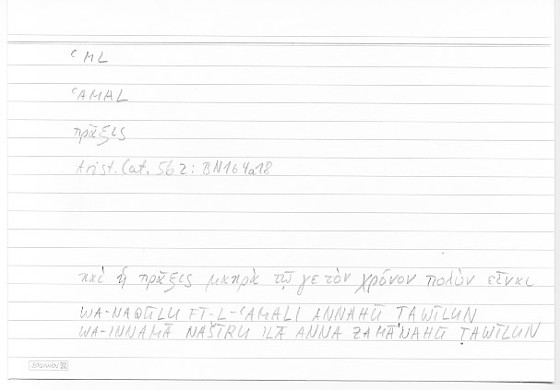 ʿML
ʿAMAL
πρᾶξις
Arist. Cat. 5b2: BN164a18
καὶ ἡ πρᾶξις μακρὰ τῷ γε τὸν χρόνον πολὺν εἶναι
WA-NAQŪLU FĪ-L-ʿAMALI ANNAHŪ ṬAWĪLUN
WA-INNAMĀ NAŠĪRU ILĀ ANNA ZAMĀNAHŪ ṬAWĪLUN